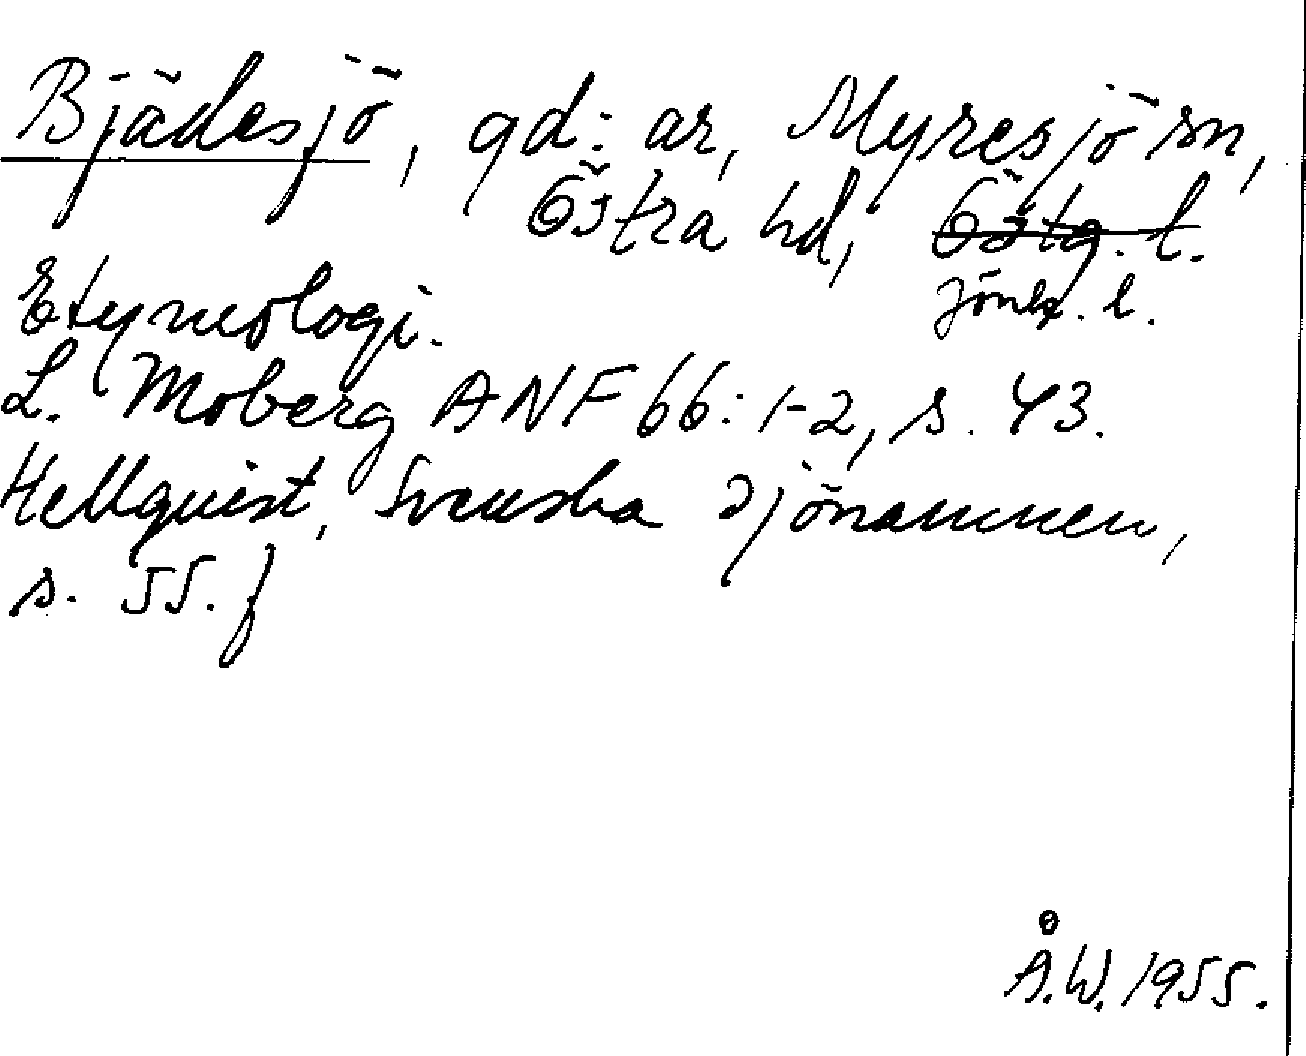 Bjädesjö, gd: ar, Myresjö sn,
Östra hd, Östg. l.
Jönk. l.
Etymologi.
L. Moberg ANF 66: 1-2, s. 43.
Hellquist, Svenska sjönamnen,
s. 55. f
Å.W. 1955.